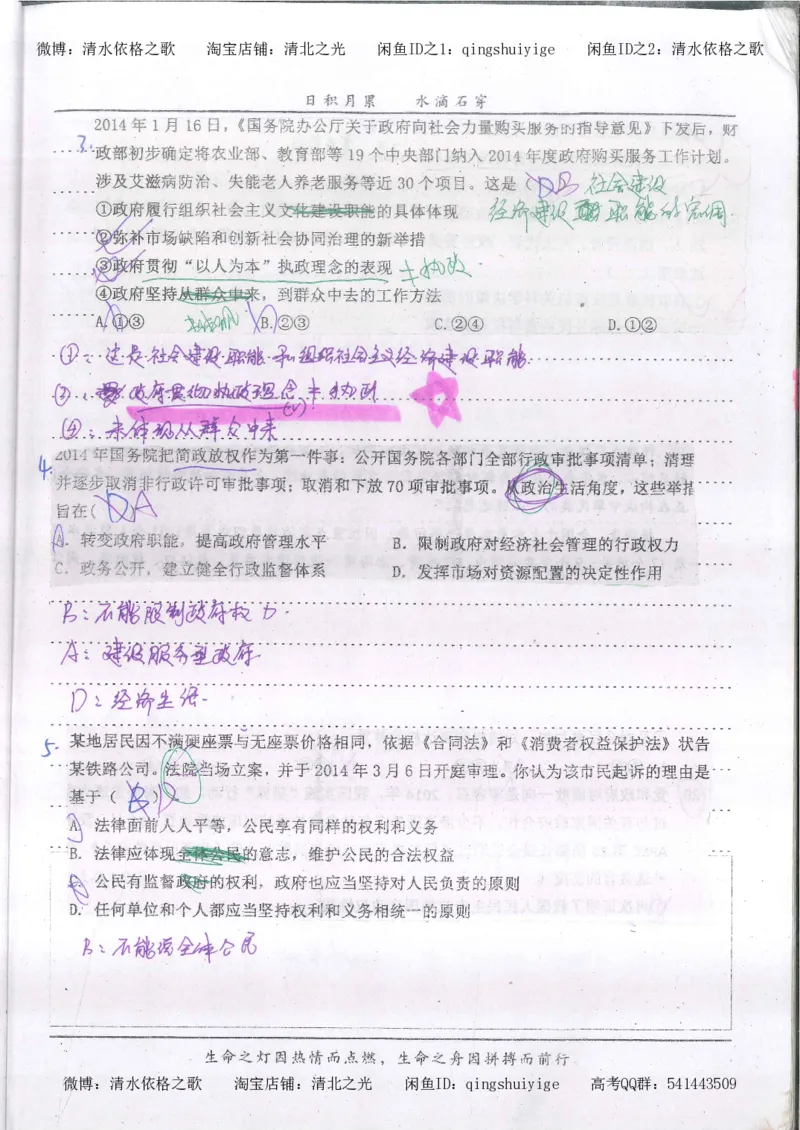 微博：清水依格之歌 淘宝店铺：清北之光 闲鱼ID之1：qingshuiyige 闲鱼ID之2：清水依格之歌
日积月累 水滴石穿
3. 2014年1月16日，《国务院办公厅关于政府向社会力量购买服务的指导意见》下发后，财
政部初步确定将农业部、教育部等19个中央部门纳入2014年度政府购买服务工作计划。
涉及艾滋病防治、失能老人养老服务等近30个项目。这是（ B 社会建设
①政府履行组织社会主义文化建设职能的具体体现 经济建设 职能的
②弥补市场缺陷和创新社会协同治理的新举措
③政府贯彻“以人为本”执政理念的表现 ≠执政
④政府坚持从群众中来，到群众中去的工作方法
A.①③ B.②③ C.②④ D.①②
①：这是社会建设职能和组织社会主义经济建设职能.
③： 政府贯彻执政理念≠执政
(√)
④：未体现从群众中来
4. 2014年国务院把简政放权作为第一件事：公开国务院各部门全部行政审批事项清单；清理
并逐步取消非行政许可审批事项；取消和下放70项审批事项。从政治生活角度，这些举措
旨在( D )A
A. 转变政府职能，提高政府管理水平 B. 限制政府对经济社会管理的行政权力
C. 政务公开，建立健全行政监督体系 D. 发挥市场对资源配置的决定性作用
B：不能限制政府权力.
A：建设服务型政府.
D：经济生活.
5. 某地居民因不满硬座票与无座票价格相同，依据《合同法》和《消费者权益保护法》状告
某铁路公司。法院当场立案，并于2014年3月6日开庭审理。你认为该市民起诉的理由是
基于（ B ）。
A. 法律面前人人平等，公民享有同样的权利和义务
B. 法律应体现全体公民的意志，维护公民的合法权益
C. 公民有监督政府的权利，政府也应当坚持对人民负责的原则
D. 任何单位和个人都应当坚持权利和义务相统一的原则
B：不能说全体公民
生命之灯因热情而点燃，生命之舟因拼搏而前行
微博：清水依格之歌 淘宝店铺：清北之光 闲鱼ID：qingshuiyige 高考QQ群：541443509